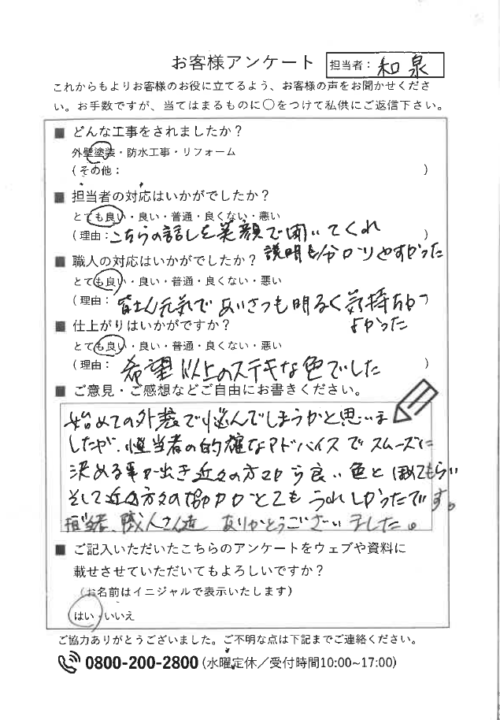 お客様アンケート 担当者： 和泉
これからもよりお客様のお役に立てるよう、お客様の声をお聞かせくださ
い。お手数ですが、当てはまるものに〇をつけて私供にご返信下さい。
■ どんな工事をされましたか？
外壁塗装・防水工事・リフォーム
（その他： ）
■ 担当者の対応はいかがでしたか？
とても良い・良い・普通・良くない・悪い
（理由：こちらの話しを笑顔で聞いてくれ ）
説明も分かりやすかった
■ 職人の対応はいかがでしたか？
とても良い・良い・普通・良くない・悪い
（理由： 皆さん元気であいさつも明るく気持ちが ）
よかった
■ 仕上がりはいかがですか？
とても良い・良い・普通・良くない・悪い
（理由： 希望以上のステキな色でした ）
■ ご意見・ご感想などご自由にお書きください。
始めての外装で悩んでしまうかと思いま
したが、担当者の的確なアドバイスでスムーズに
決める事が出き近々の方々から良い色とほめてもらい
そして近々方々の協力がとてもうれしかったです。
担当者、職人さん達 ありがとうございました。
■ ご記入いただいたこちらのアンケートをウェブや資料に
載せさせていただいてもよろしいですか？
（お名前はイニジャルで表示いたします）
はい・いいえ
ご協力ありがとうございました。ご不明な点は下記までご連絡ください。
0800-200-2800 (水曜定休／受付時間10:00~17:00)